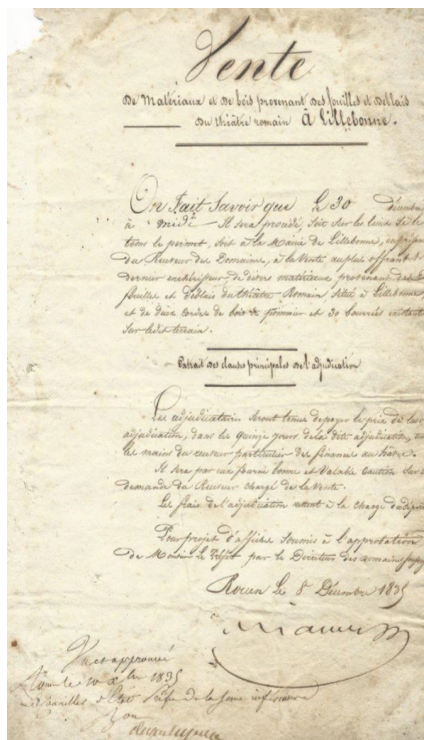 Vente
de Matériaux et de bois provenant des fouilles et déblais
du théâtre romain à Lillebonne.
On Fait Savoir que le 30 décembre
à midi Il sera procédé, soit sur les lieux si le
tems le permet, soit à la Mairie de Lillebonne,
du Receveur des Domaines, à la Vente au plus offrant &
dernier enchérisseur de divers matériaux provenant des
fouilles et déblais du théâtre Romain situé à Lillebonne
et de deux cordes de bois de pommier et 30 bourrées
sur ledit terrain.
Extrait des clauses principales de l'adjudication
Les adjudicataires seront tenus de payer le prix de leur
adjudication, dans les quinze jours de la dite adjudication,
les mains du receveur particulier des finances au havre.
Il sera par eux fourni bonne et valable caution sur
demande du Receveur chargé de la Vente.
Les frais de l'adjudication seront à la charge
Pour projet d'affiche soumis à l'approbation
de Monsieur le Préfet par le Directeur des domaines
Rouen le 8 Décembre 1835
Vu et approuvé
Rouen le 10 1835